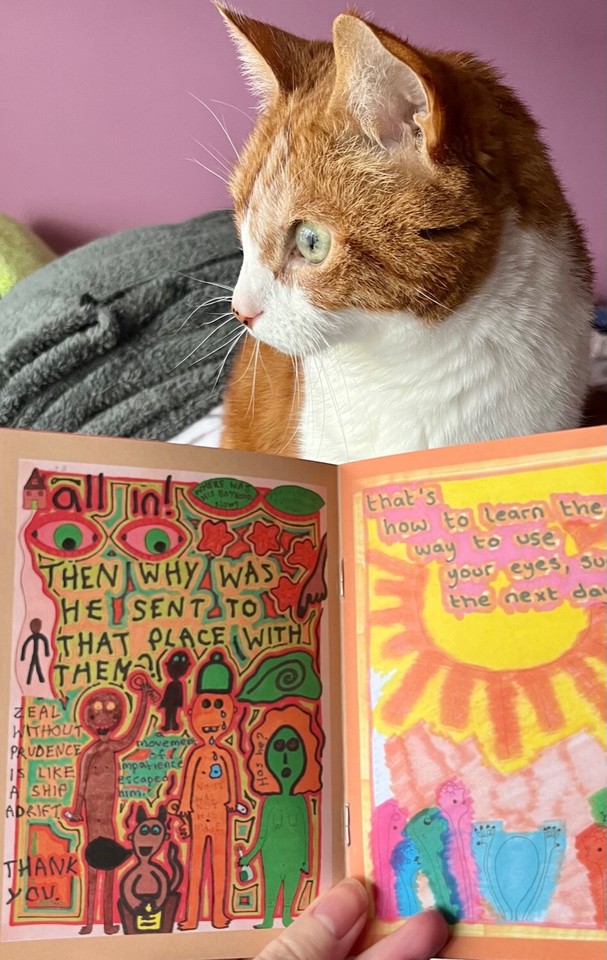 all in!
WHERE WAS
HIS BAYBOO
NOW?
THEN WHY WAS
HE SENT TO
THAT PLACE WITH
THEM?!
ZEAL
WITHOUT
PRUDENCE
IS LIKE
A SHIP
ADRIFT.
a
movement
of
impatience
escaped
him.
Has he?
THANK
YOU.
that's
how to learn the
way to use
your eyes, su
the next da